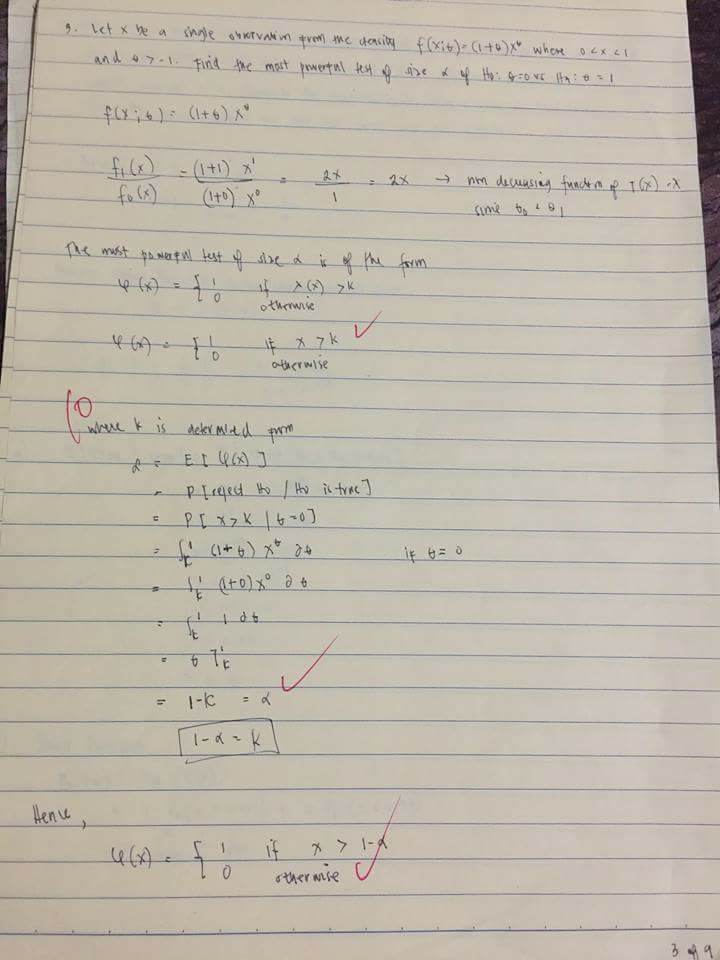 9. Let x be a single observation from the density f(x;θ)=(1+θ)x^θ where 0<x<1
and θ>-1. Find the most powerful test of size α of H0: θ=0 vs Ha: θ=1
f(x;θ) = (1+θ) x^θ
f1(x)/f0(x) = (1+1) x^1/(1+0) x^0 = 2x/1 = 2x → non decreasing function of T(x)=X
since θ0 < θ1
The most powerful test of size α is of the form
φ(x) = { 1 if λ(x) >k
0 otherwise
φ(x) = { 1 if x >k
0 otherwise
where k is determined from
α = E[φ(x)]
= P[reject Ho / Ho is true]
= P[x>k | θ=0]
= ∫_k^1 (1+θ) x^θ ∂θ if θ=0
= ∫_k^1 (1+0)x^0 ∂θ
= ∫_k^1 1 ∂θ
= θ]_k^1
= 1-k = α
1-α = k
Hence,
φ(x) = { 1 if x > 1-α
0 otherwise
3 of 9